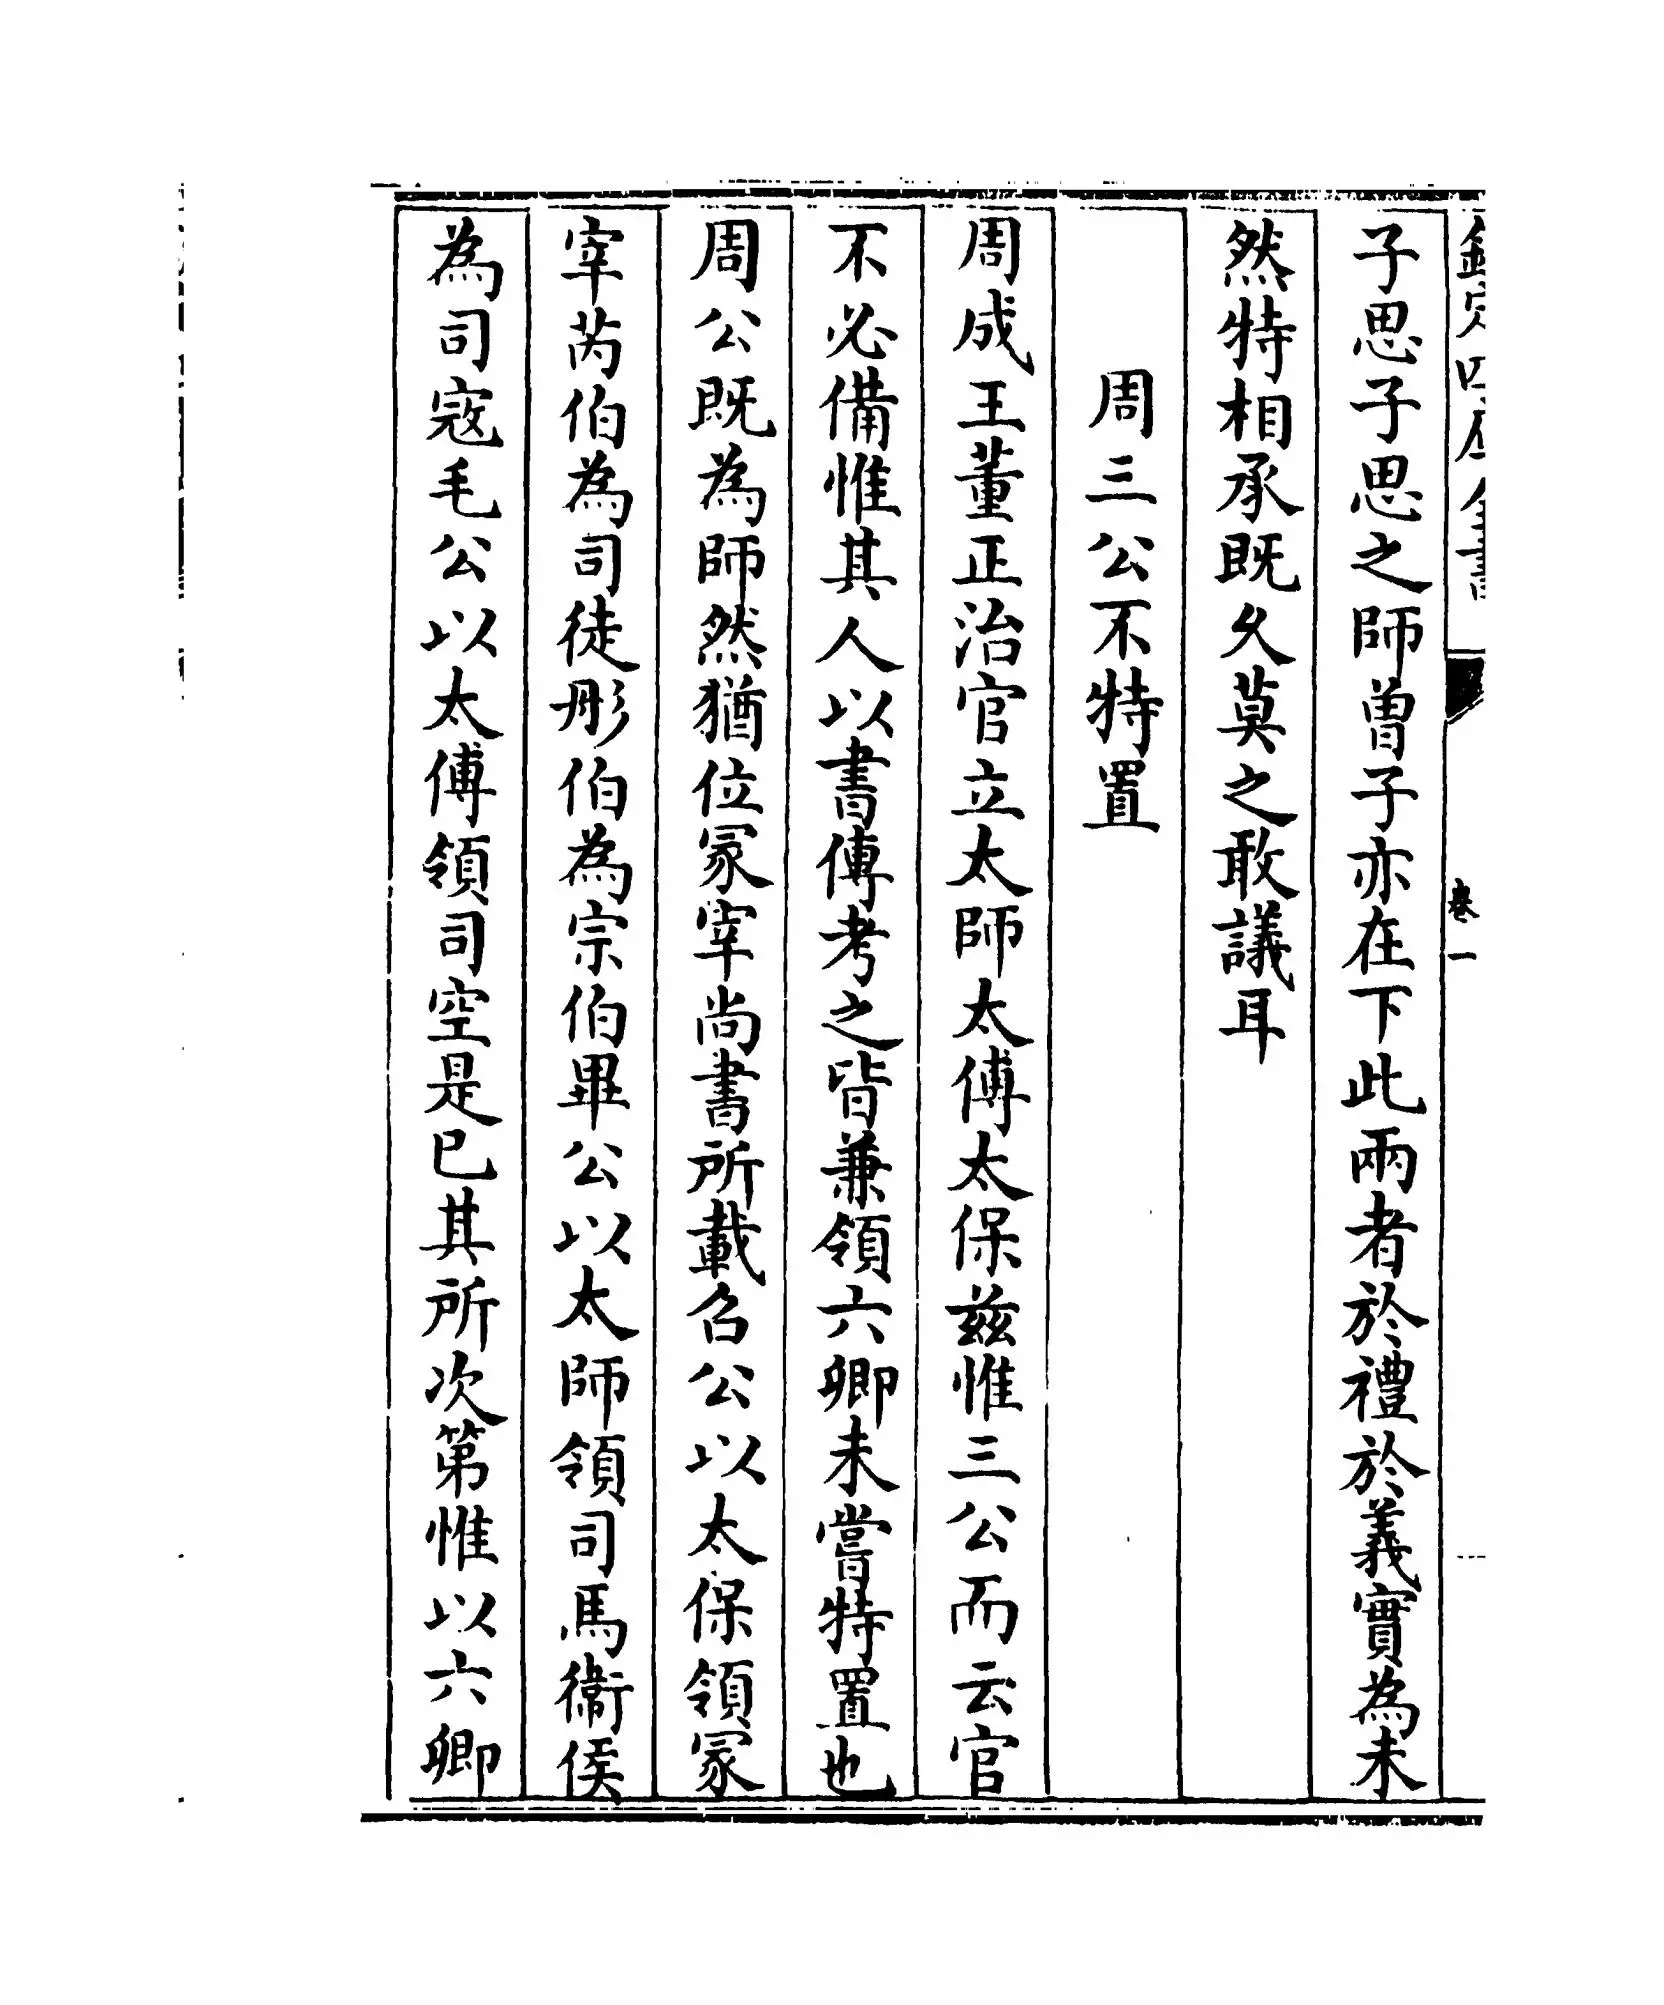 欽定四庫全書 卷一
子思子思之師曽子亦在下此兩者於禮於義實為未
然特相承既久莫之敢議耳
周三公不特置
周成王董正治官立太師太傅太保兹惟三公而云官
不必備惟其人以書傳考之皆兼領六卿未嘗特置也
周公既為師然猶位冡宰尚書所載召公以太保領冡
宰芮伯為司徒彤伯為宗伯畢公以太師領司馬衞侯
為司寇毛公以太傅領司空是已其所次第惟以六卿